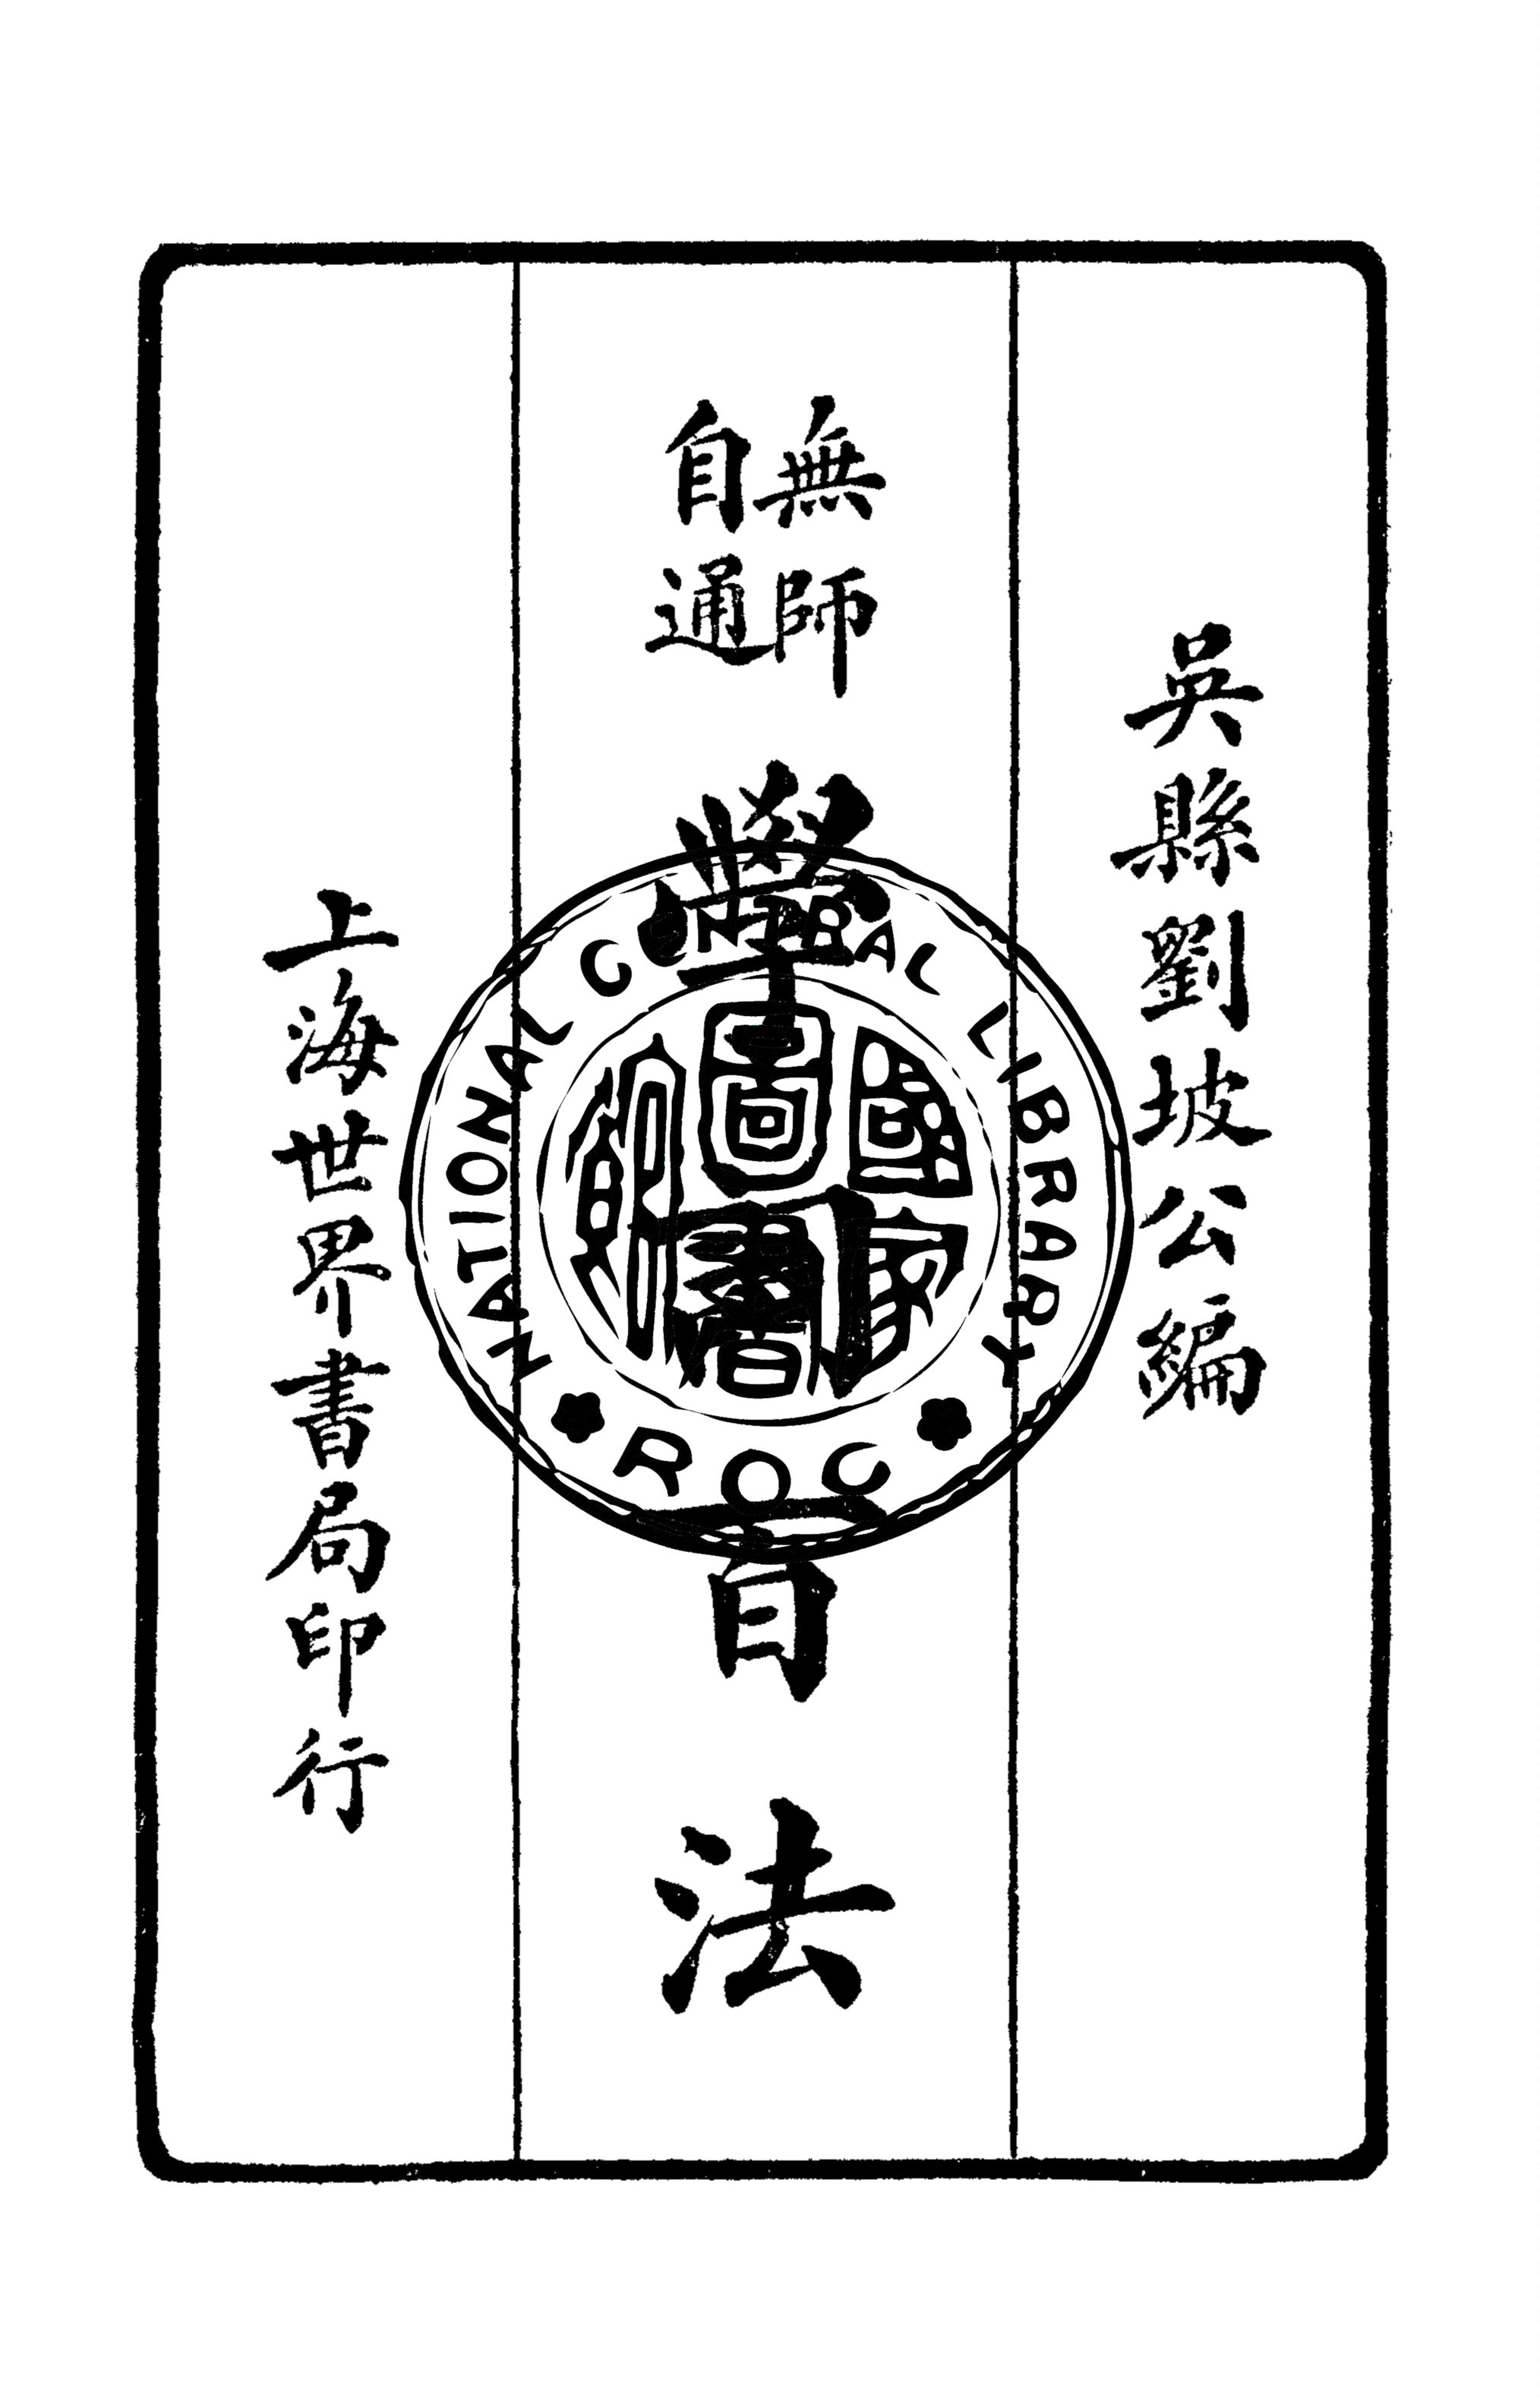 吳縣劉坡公編
無師
自通
學
百法
上海世界書局印行
NATIONAL CENTRAL LIBRARY
ROC
國家
圖書
館